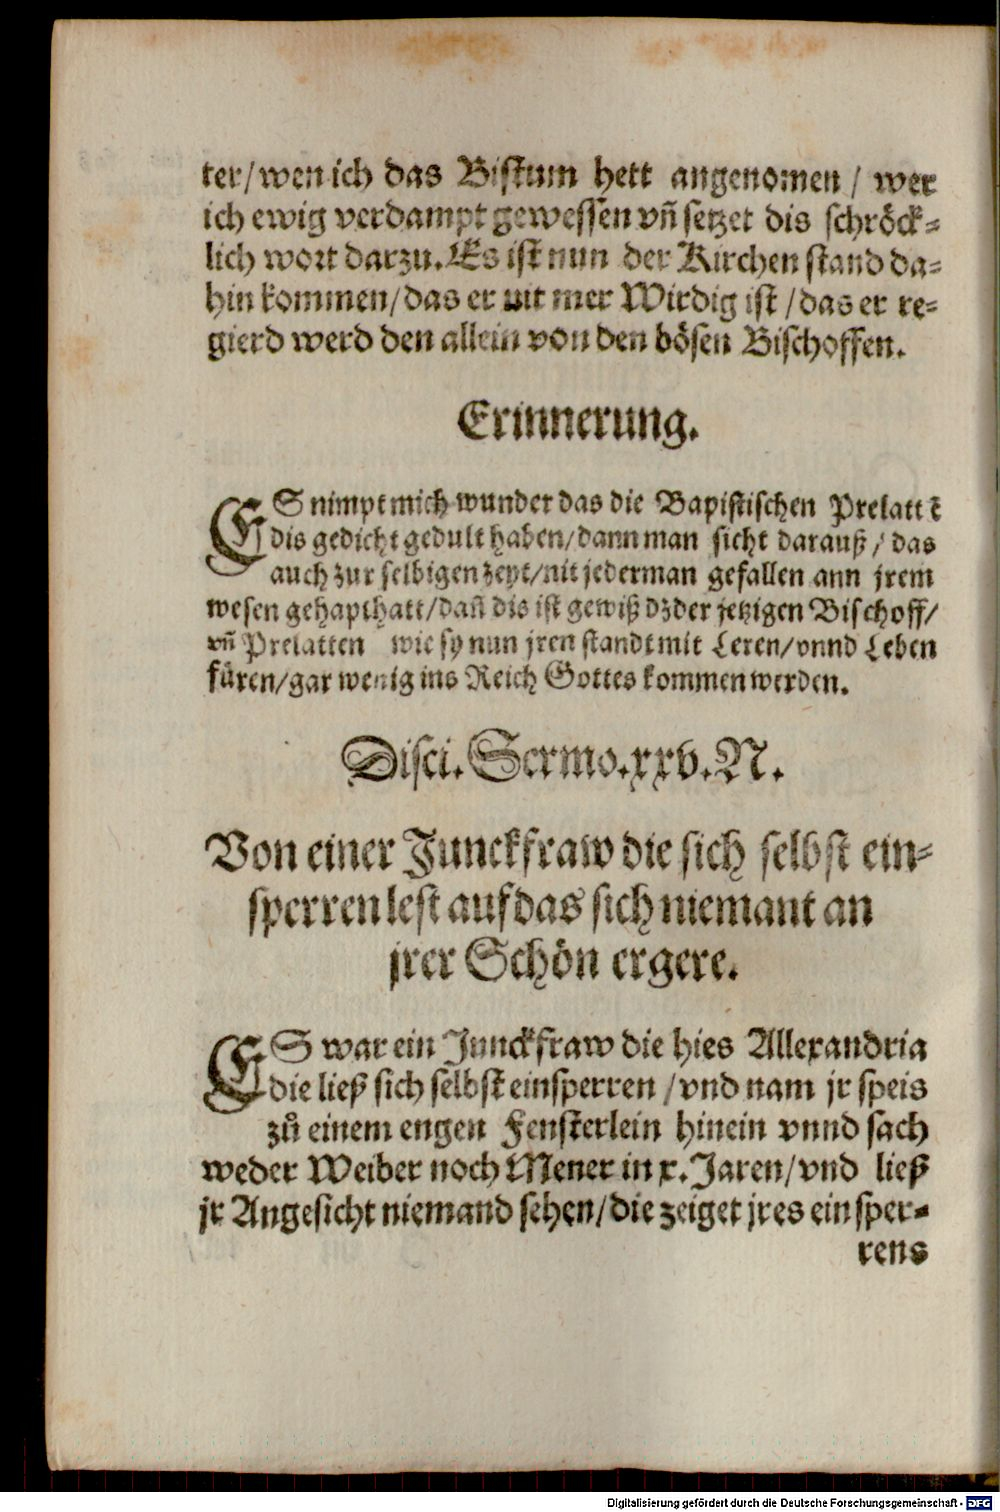 ter/wen ich das Bistum hett angenomen / wer
ich ewig verdampt gewessen vñ setzet dis schröck⸗
lich wort darzu. Es ist nun der Kirchen stand da⸗
hin kommen/das er nit mer Wirdig ist /das er re⸗
gierd werd den allein von den bösen Bischoffen.
Erinnerung.
ES nimpt mich wunder das die Bapistischen Prelattē
dis gedicht gedult haben/dann man sicht darauß / das
auch zur selbigen zeyt/nit jederman gefallen ann jrem
wesen gehapt hatt/dañ dis ist gewiß dz der jetzigen Bischoff/
vñ Prelatten wie sy nun jren standt mit Leren/vnnd Leben
füren/gar wenig ins Reich Gottes kommen werden.
Disci. Sermo. xxv. N.
Von einer Junckfraw die sich selbst ein⸗
sperren lest auf das sich niemant an
jrer Schön ergere.
ES war ein Junckfraw die hies Allexandria
die ließ sich selbst einsperren / vnd nam jr speis
zů einem engen Fensterlein hinein vnnd sach
weder Weiber noch Mener in x. Jaren/vnd ließ
jr Angesicht niemand sehen/die zeiget jres einsper⸗
rens
Digitalisierung gefördert durch die Deutsche Forschungsgemeinschaft - DFG